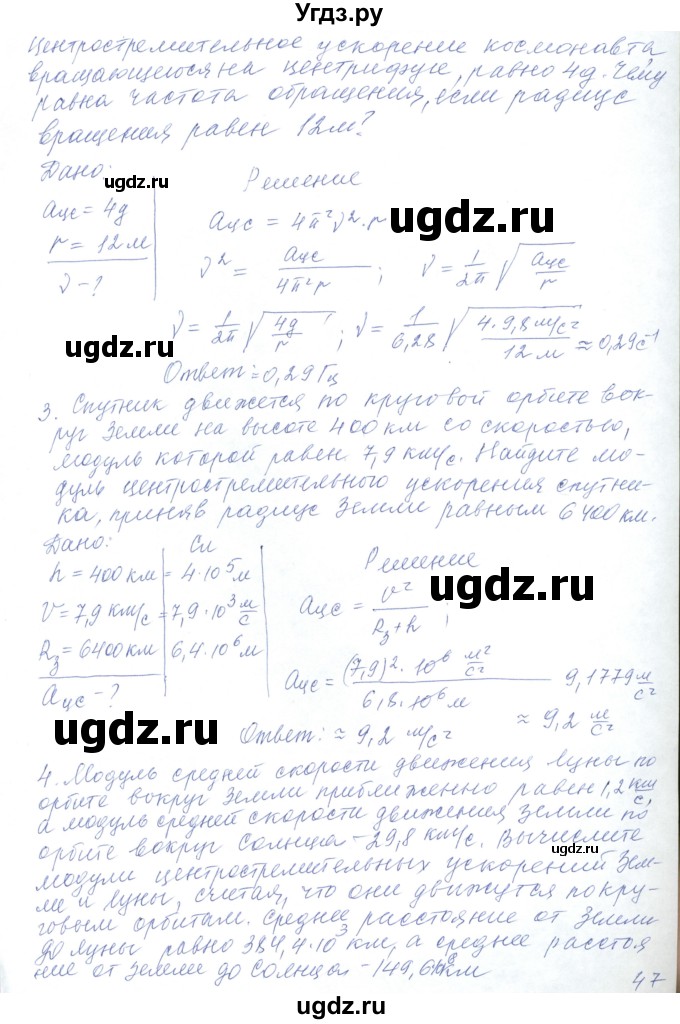 Угдз.ру
Центростремительное ускорение космонавта
вращающегося на центрифуге, равно 4g. Чему
равна частота обращения, если радиус
вращения равен 12м?
Дано:
Решение
aцс = 4g
r = 12 м
ν - ?
aцс = 4π²ν²·r
ν² = aцс / 4π²r ; ν = 1/2π √(aцс/r)
ν = 1/2π √(4g/r) ; ν = 1/6,28 √(4·9,8 м/с² / 12 м) ≈ 0,29 с⁻¹
Ответ: ≈ 0,29 Гц
3. Спутник движется по круговой орбите вок-
руг Земли на высоте 400 км со скоростью,
модуль которой равен 7,9 км/с. Найдите мо-
дуль центростремительного ускорения спутни-
ка, приняв радиус Земли равным 6400 км.
Дано: Си Решение
h = 400 км = 4·10⁵ м
V = 7,9 км/с = 7,9·10³ м/с
Rз = 6400 км 6,4·10⁶ м
aцс - ?
aцс = v² / Rз + h ;
aцс = (7,9)²·10⁶ м²/с² / 6,8·10⁶ м 9,1779 м/с²
≈ 9,2 м/с²
Ответ: ≈ 9,2 м/с²
4. Модуль средней скорости движения Луны по
орбите вокруг Земли приближенно равен 1,2 км/с,
а модуль средней скорости движения Земли по
орбите вокруг Солнца - 29,8 км/с. Вычислите
модули центростремительных ускорений Зем-
ли и Луны, считая, что они движутся по кру-
говым орбитам. Среднее расстояние от Земли
до Луны равно 384,4·10³ км, а среднее расстоя
ние от Земле до Солнца - 149,6 км
47
ugdz.ru
ugdz.ru
ugdz.ru
ugdz.ru
ugdz.ru
ugdz.ru
ugdz.ru
ugdz.ru